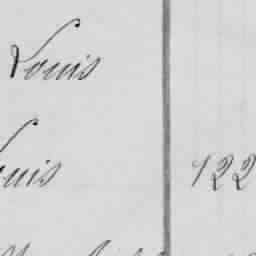 Louis
ouis 122